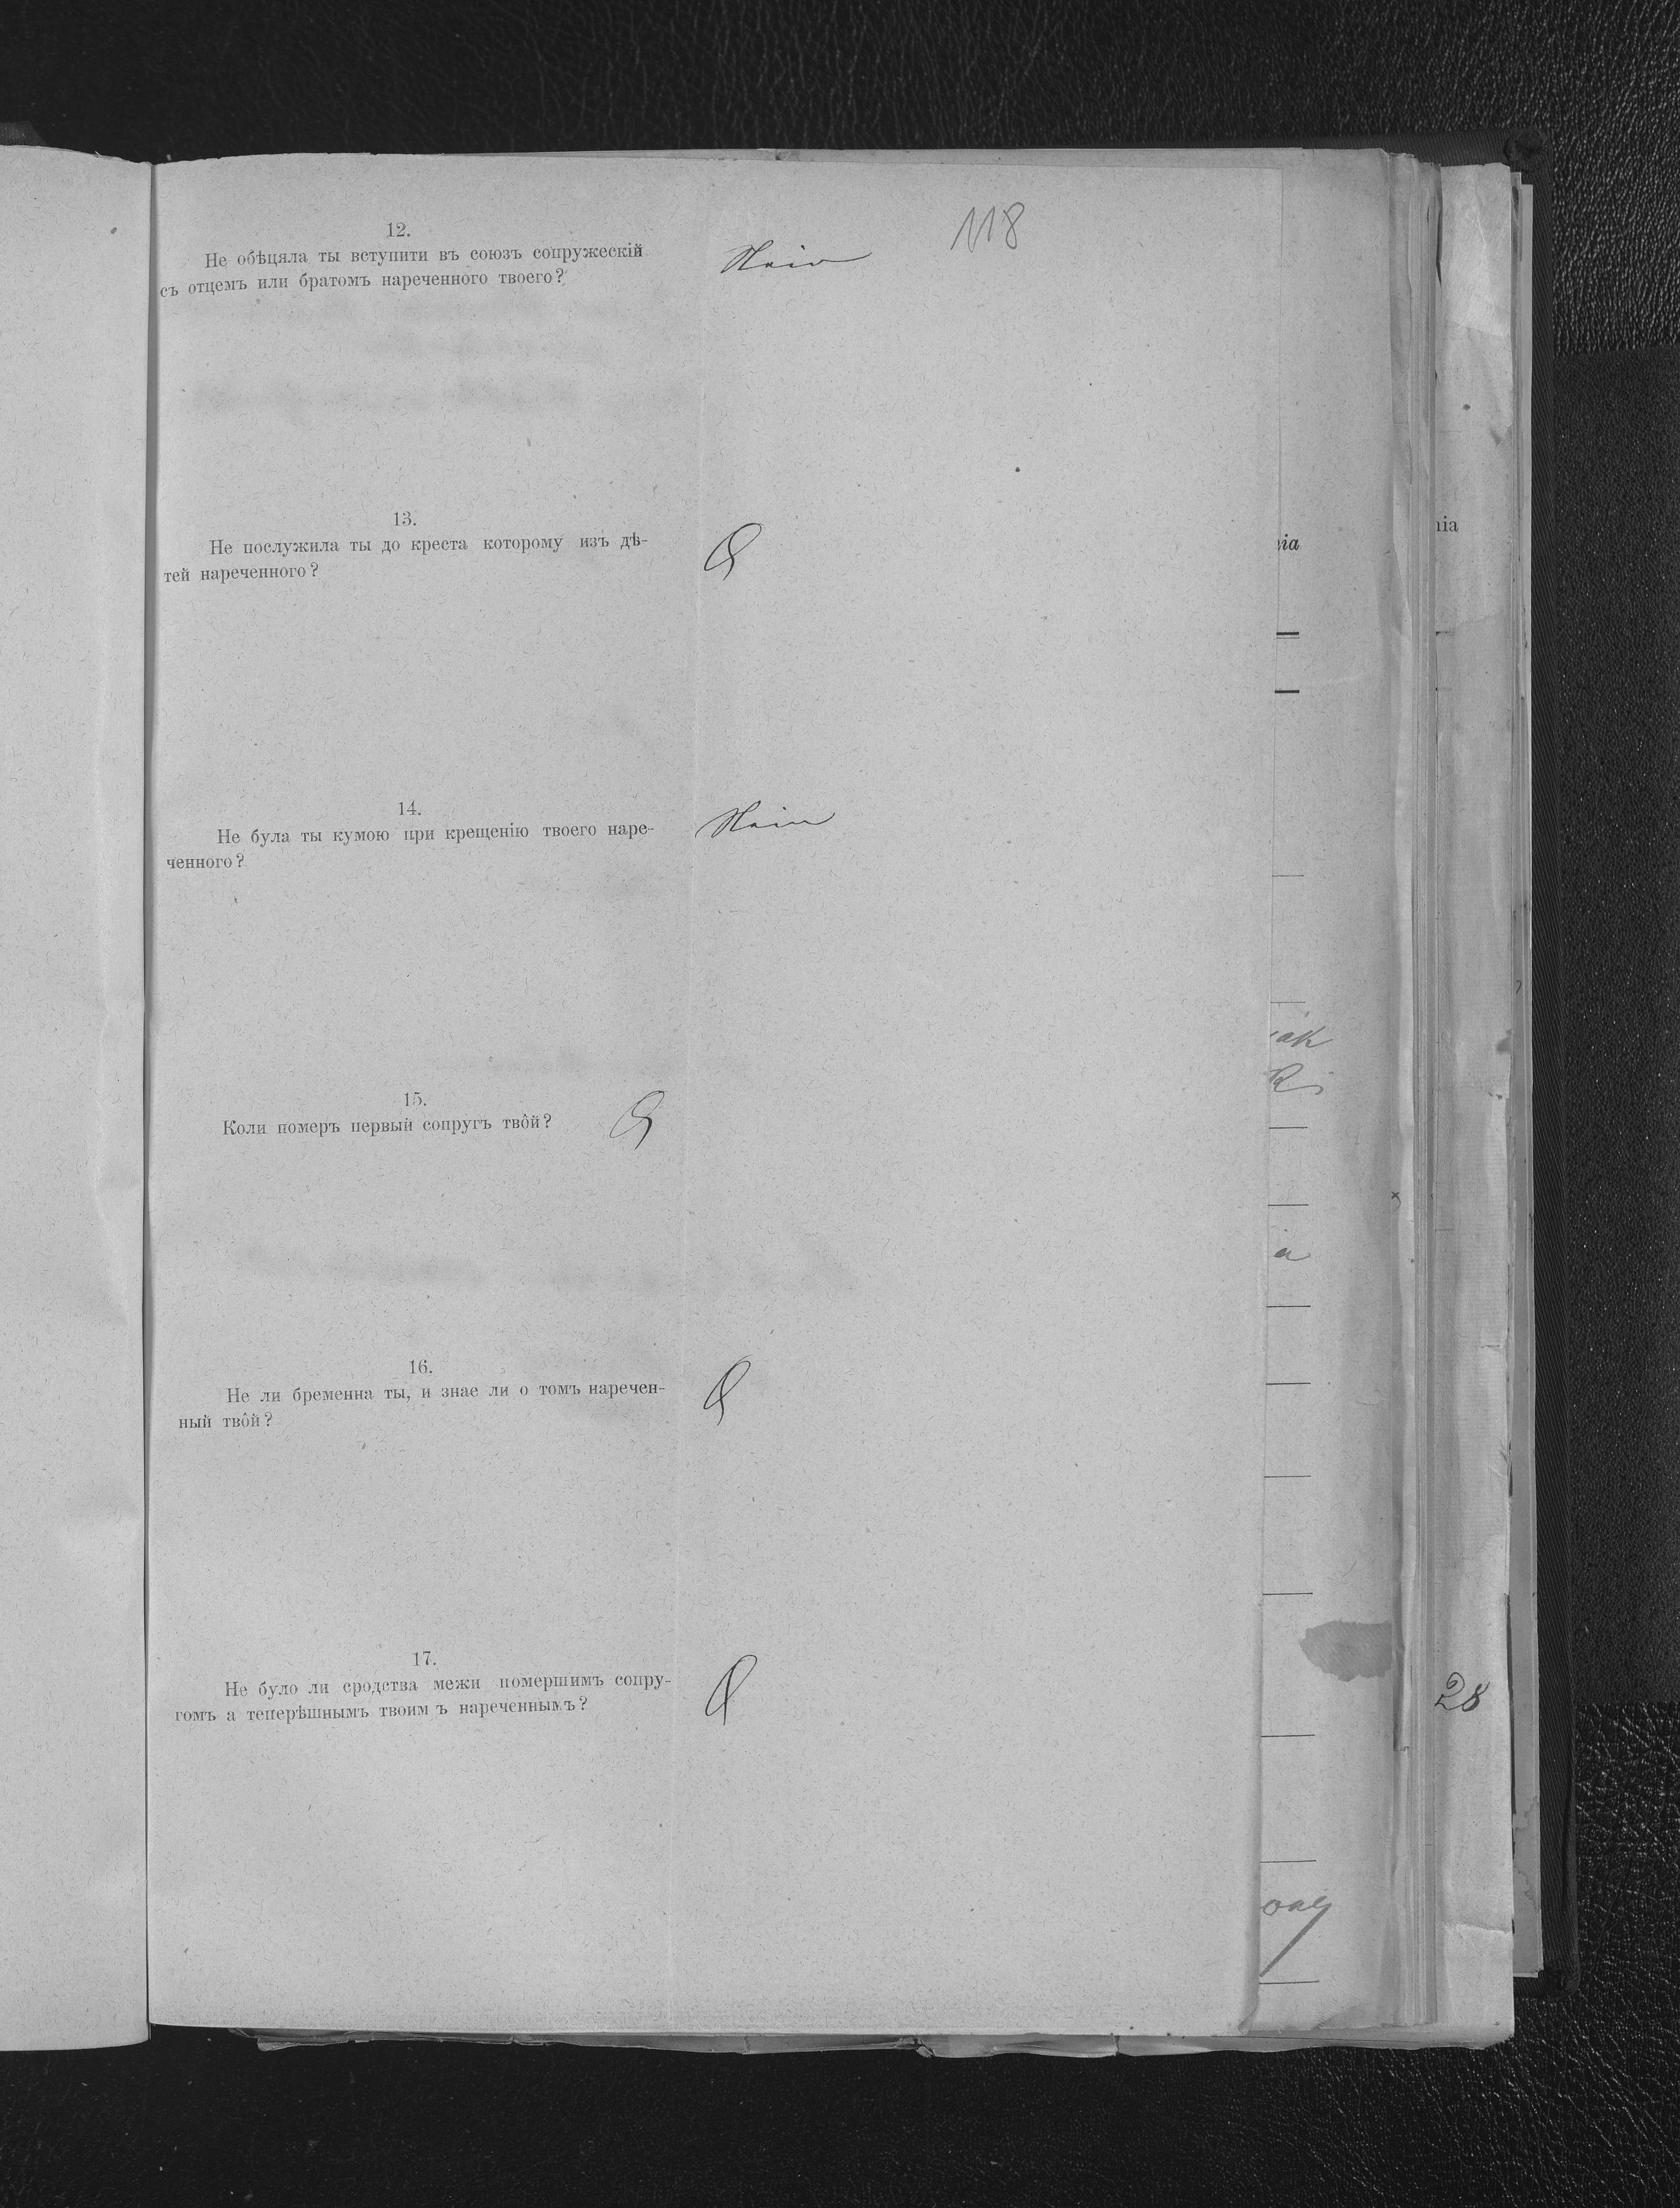 118
12.
Не обѣцяла ты вступити въ союзъ сопружескій
съ отцемъ или братомъ нареченного твоего?
Nein
13.
Не послужила ты до креста которому изъ дѣ-
тей нареченного?
14.
Не була ты кумою при крещенію твоего наре-
ченного?
Nein
15.
Коли померъ первый сопругъ твôй?
16.
Не ли бременна ты, и знае ли о томъ наречен-
ный твôй?
17.
Не було ли сродства межи померпимъ сопру-
гомъ а теперѣшнымъ твоим ъ нареченнымъ?
nia
nia
ak
ki
a
28